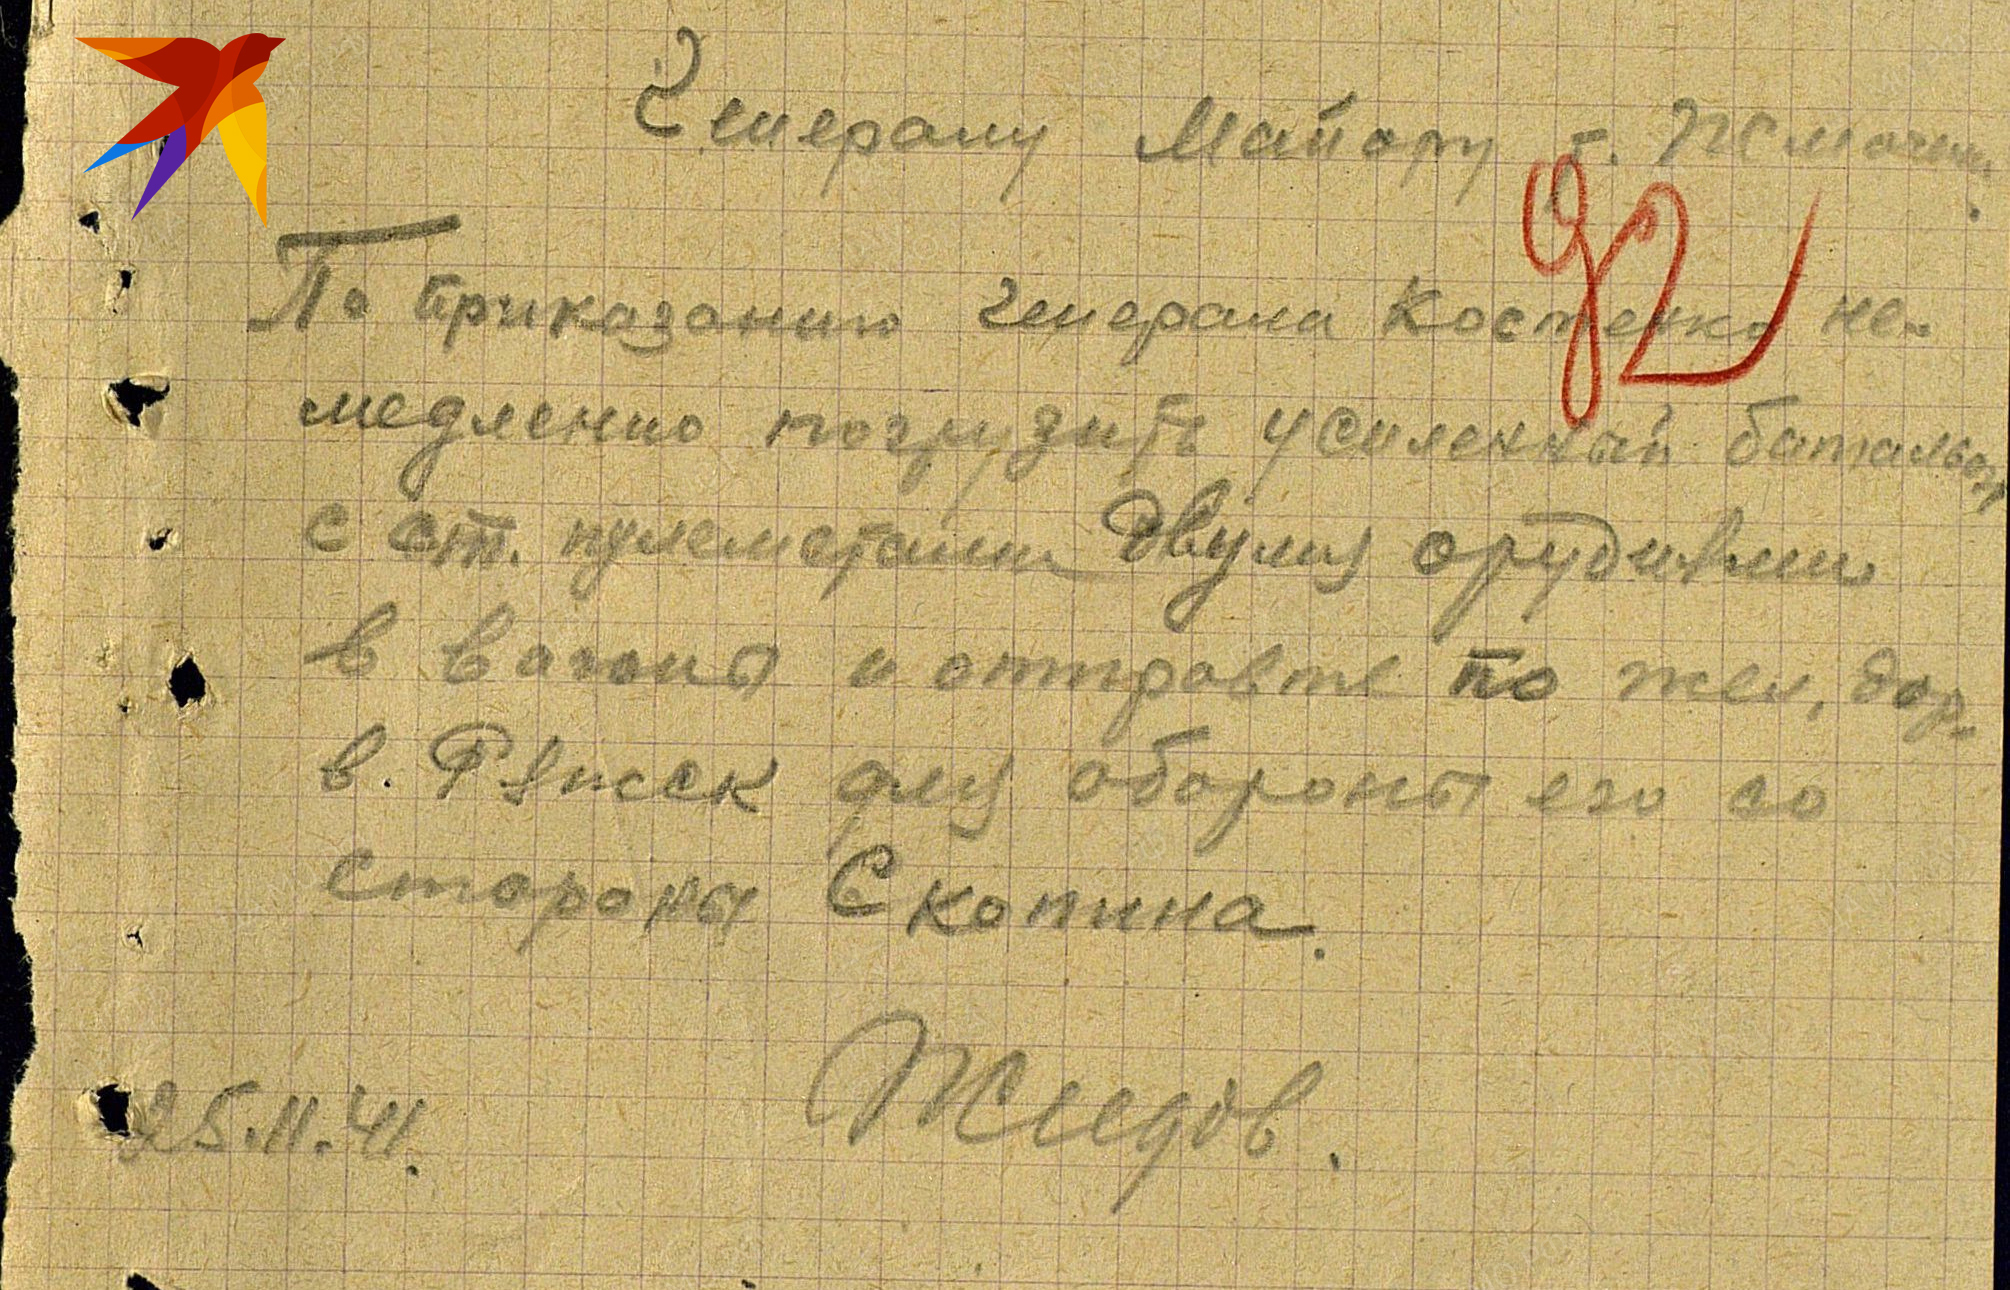 Генералу Майору т. Жмаченко
92
По приказанию генерала Костенко не-
медленно погрузить усиленный батальон
с ст. пулеметами двумя орудиями
в вагоны и отправте по жел. дор.
в. Ряжск для обороны его со
стороны Скопина.
Жидов.
25.11.41.